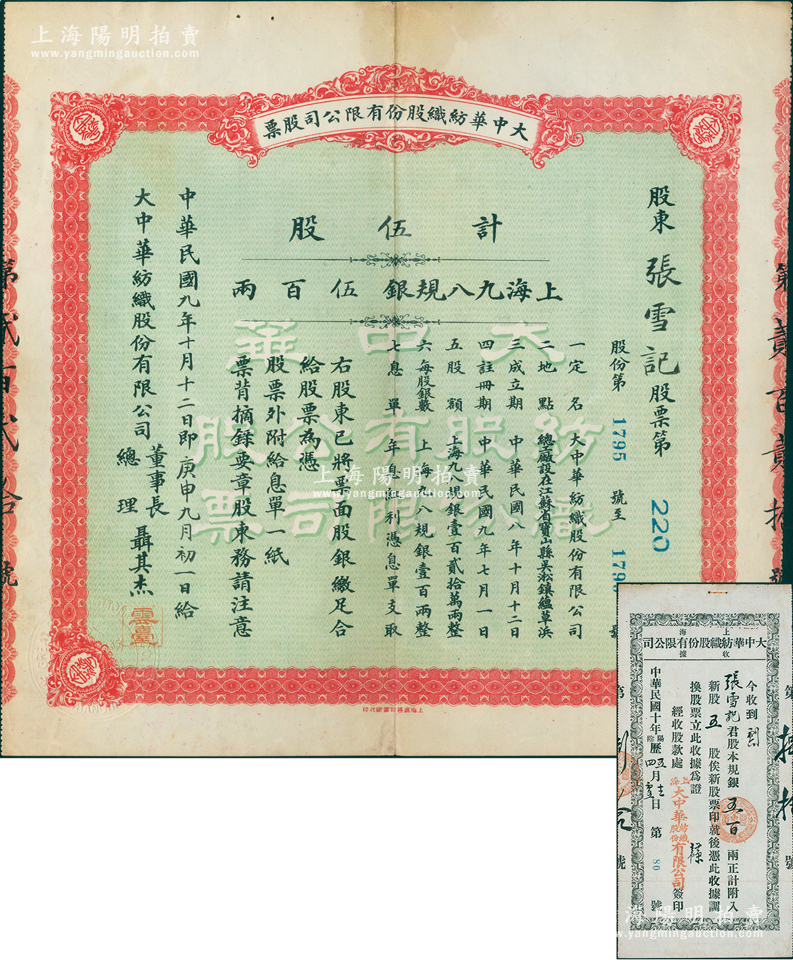 上海陽明拍賣
www.yangmingauction.com
大中華紡織股份有限公司股票
股東 張雪記 股票第 220
股份第 1795 號至
計伍股
上海九八規銀伍百兩
一定名 大中華紡織股份有限公司
二地點 總廠設在江蘇省寶山縣吳淞鎮蘊草浜
三成立期 中華民國八年十月十二日
四註冊期 中華民國九年七月一日
五股額 上海九八規銀壹百貳拾萬兩整
六每股銀數 上海九八規銀壹百兩整
七息單 年息
利憑息單支取
右股東已將票面股銀繳足合
給股票為憑
股票外附給息單一紙
票背摘錄要章股東務請注意
中華民國九年十月十二日即庚申九月初一日給
大中華紡織股份有限公司 董事長 總理 聶其杰
雲臺
大中華
紡織股份有限公司股票
第貳百貳拾號
上海陽明拍賣
www.yangmingauction.com
上海
大中華紡織股份有限公司
收據
今收到
張雪記君股本規銀五百兩正計附入
新股五股俟新股票印就後憑此收據調
換股票立此收據為證
經收股款處 上海大中華紡織股份有限公司 簽印
中華民國十年陽陰歷五四月
日 第 80 號
上海陽明拍賣
www.yangmingauction.com